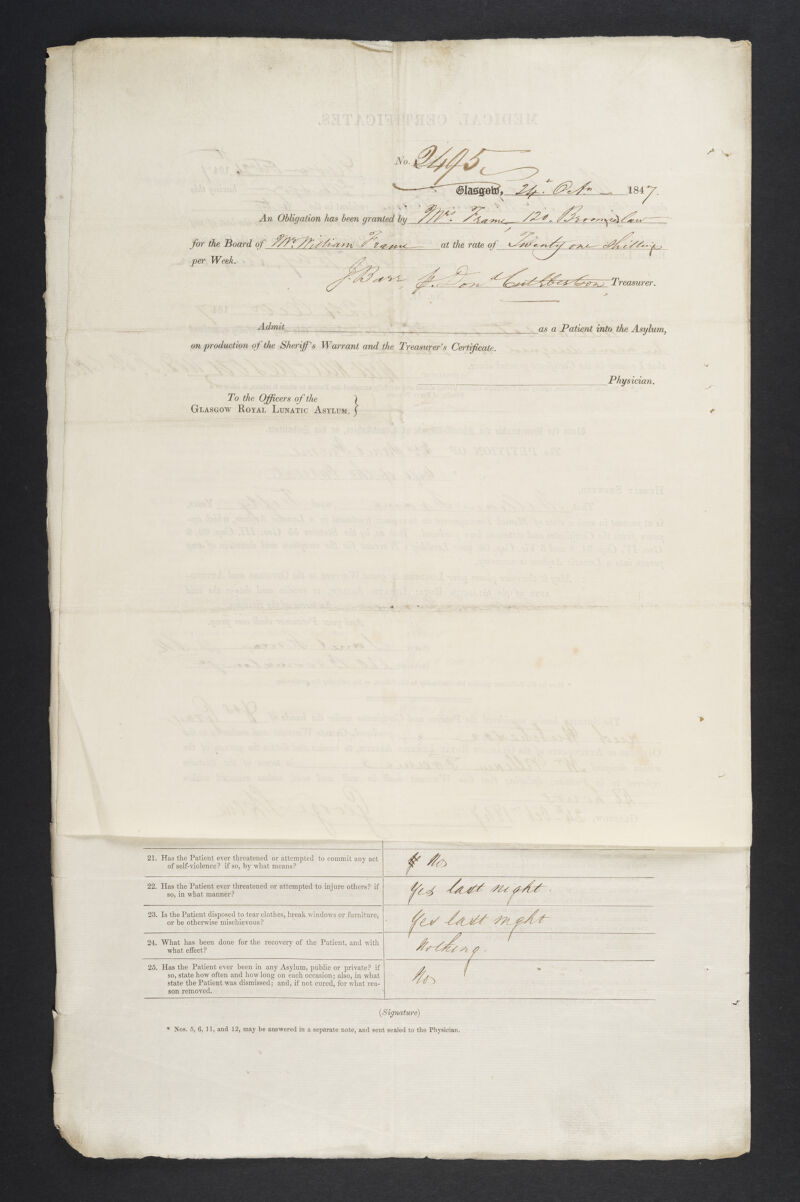 No. 2495
Glasgow, 24th Octr 1847.
An Obligation has been granted by Mrs. Frame 120. Broomielaw
for the Board of Mr William Frame at the rate of Twenty one Shillings
per Week.
J. Barr, Treasurer.
Admit as a Patient into the Asylum,
on production of the Sheriff's Warrant and the Treasurer's Certificate.
Physician.
To the Officers of the
GLASGOW ROYAL LUNATIC ASYLUM.
21. Has the Patient ever threatened or attempted to commit any act No
of self-violence? if so, by what means?
22. Has the Patient ever threatened or attempted to injure others? if Yes last night.
so, in what manner?
23. Is the Patient disposed to tear clothes, break windows or furniture, Yes last night
or be otherwise mischievous?
24. What has been done for the recovery of the Patient, and with Nothing.
what effect?
25. Has the Patient ever been in any Asylum, public or private? if No
so, state how often and how long on each occasion; also, in what
state the Patient was dismissed; and, if not cured, for what rea-
son removed.
(Signature)
* Nos. 5, 6, 11, and 12, may be answered in a separate note, and sent sealed to the Physician.